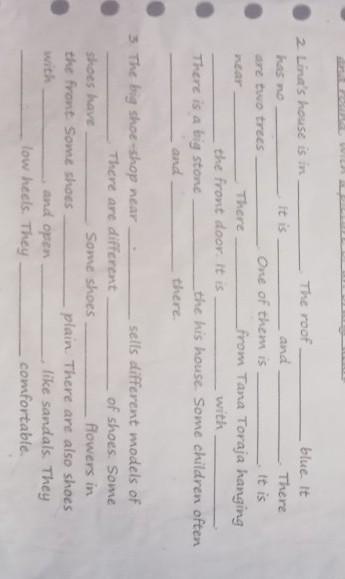 and round, with a
2. Lina's house is in ________. The roof ________ blue. It
has no ________, it is ________ and ________. There
are two trees ________. One of them is ________. It is
near ________. There ________ from Tana Toraja hanging
________ the front door. It is ________ with ________.
There is a big stone ________ the his house. Some children often
________ and ________ there.
3. The big shoe-shop near ________ sells different models of
________. There are different ________ of shoes. Some
shoes have ________. Some shoes ________ flowers in
the front. Some shoes ________ plain. There are also shoes
with ________, and open ________, like sandals. They
________ low heels. They ________ comfortable.